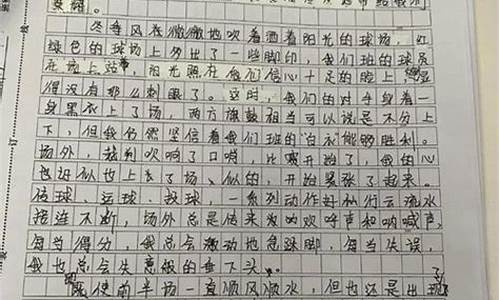 冬季风在微微地吹着洒着阳光的球场,红
绿色的球场上多出了一些脚印,我们班的球员
在场上站,阳光照在他们信心十足的脸上,
得没有那么刺眼了。这时,我们的对手身着一
身黑衣上了场,两方旗鼓相当可以说是不分上
下,但我仍然坚信着我们班的"白衣能够胜利。
场外,裁判吹响了口哨,比赛开始了,我的心
也近似也上了场、似的,开始紧张了起来。
传球、运球、投球,一系列动作好似行云流水
接连不断,场外总是传来为欢呼声和呐喊声,
每当得分,我总会激动地急跺脚,每当失误,
我也总会失意般的垂下头。
即使前半场一直顺风顺水,但也还是出现